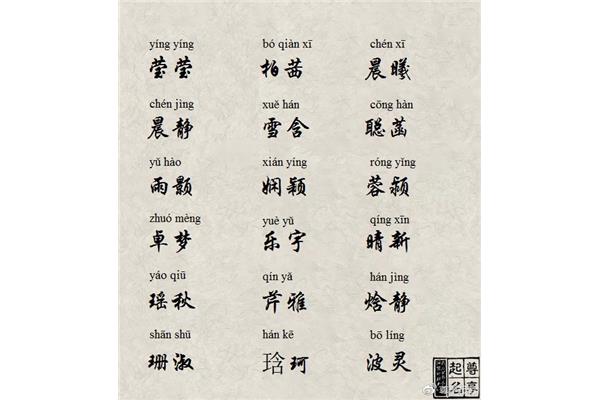 yíng yíng bó qiàn xī chén xī
莹莹 柏茜 晨曦
chén jìng xuě hán cōng hàn
晨静 雪含 聪菡
yǔ hào xián yíng róng yǐng
雨颢 娴颖 蓉颍
zhuó mèng yuè yǔ qíng xīn
卓梦 乐宇 晴新
yáo qiū qín yǎ hán jìng
瑶秋 芹雅 焓静
shān shū hán kē bō líng
珊淑 琀珂 波灵
尊享
起名